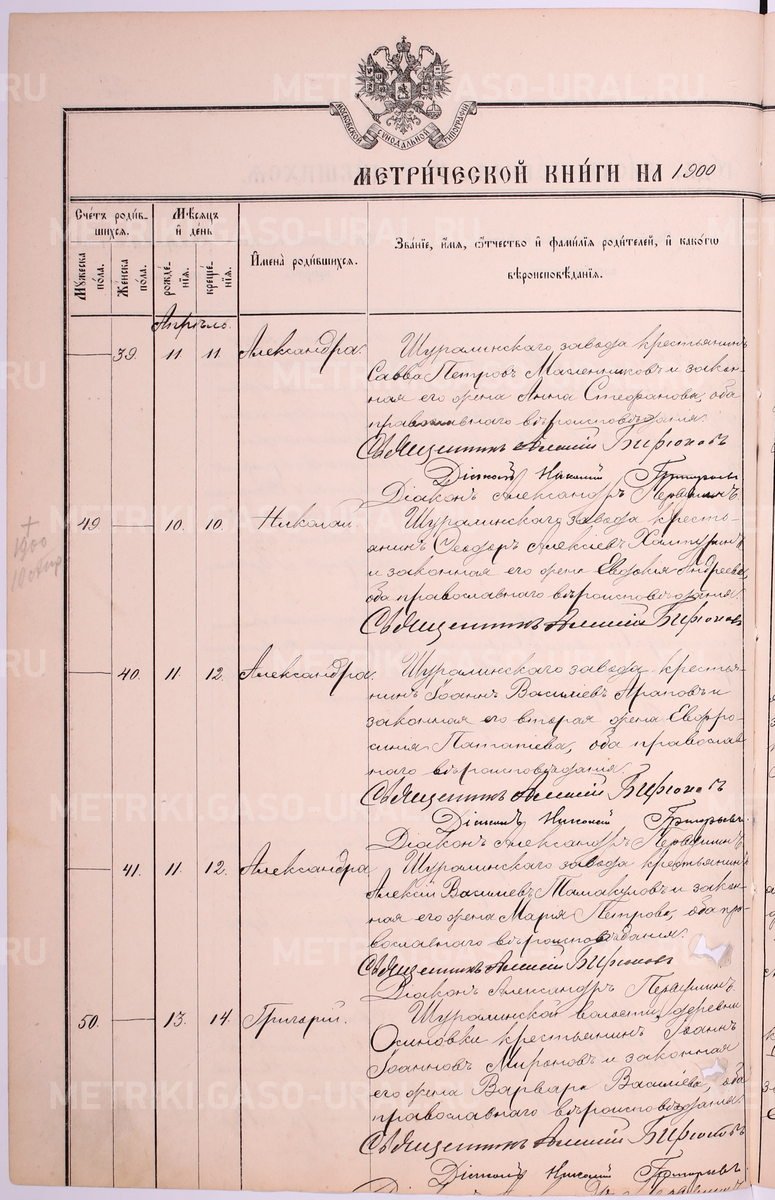 МОСКОВСКОЙ СѴНОДАЛЬНОЙ ТИПОГРАФІИ
МЕТРИ́ЧЕСКОЙ КНИ́ГИ НА 1900
Счетъ роди́в-
шихся.
Мѣсяцъ
и день
Мужеска
пола.
Женска
пола.
рожде-
нія.
креще-
нія.
Имена роди́вшихся.
Зва́нїе, и҆́мя, ѻ҆́тчество и҆ фами́лїя роди́телей, и҆ како́гѡ
вѣроисповѣ́данїя.
Апрѣль.
39. 11 11. Александра.
Шуралинскаго завода крестьянинъ
Савва Петровъ Масленниковъ и закон-
ная его жена Анна Стефанова, оба
православнаго вѣроисповѣданія.
Священникъ Алексій Бирюковъ
Діаконъ Александръ Первушинъ.
49. 10. 10. Николай.
Шуралинскаго завода кресть-
янинъ Ѳеодоръ Алексіевъ
и законная его жена Евдокія Андреева,
оба православнаго вѣроисповѣданія.
Священникъ Алексій Бирюковъ
1900
40. 11. 12. Александра.
Шуралинскаго завода крестья-
нинъ Іоаннъ Василіевъ Араповъ и
законная его вторая жена Евфро-
синія Потапіева, оба православ-
наго вѣроисповѣданія.
Священникъ Алексій Бирюковъ
Діаконъ Александръ Первушинъ.
41. 11. 12. Александра
Шуралинскаго завода крестьянинъ
Алексій Василіевъ Томакуловъ и закон-
ная его жена Марія Петрова, оба пра-
вославнаго вѣроисповѣданія.
Священникъ Алексій Бирюковъ
Діаконъ Александръ Первушинъ.
50. 13. 14. Григорій.
Шуралинской волости, деревни
Осиновки крестьянинъ Іоаннъ
Іоанновъ Мироновъ и законная
его жена Варвара Василіева, оба
православнаго вѣроисповѣданія.
Священникъ Алексій Бирюковъ
METRIKI.GASO-URAL.RU